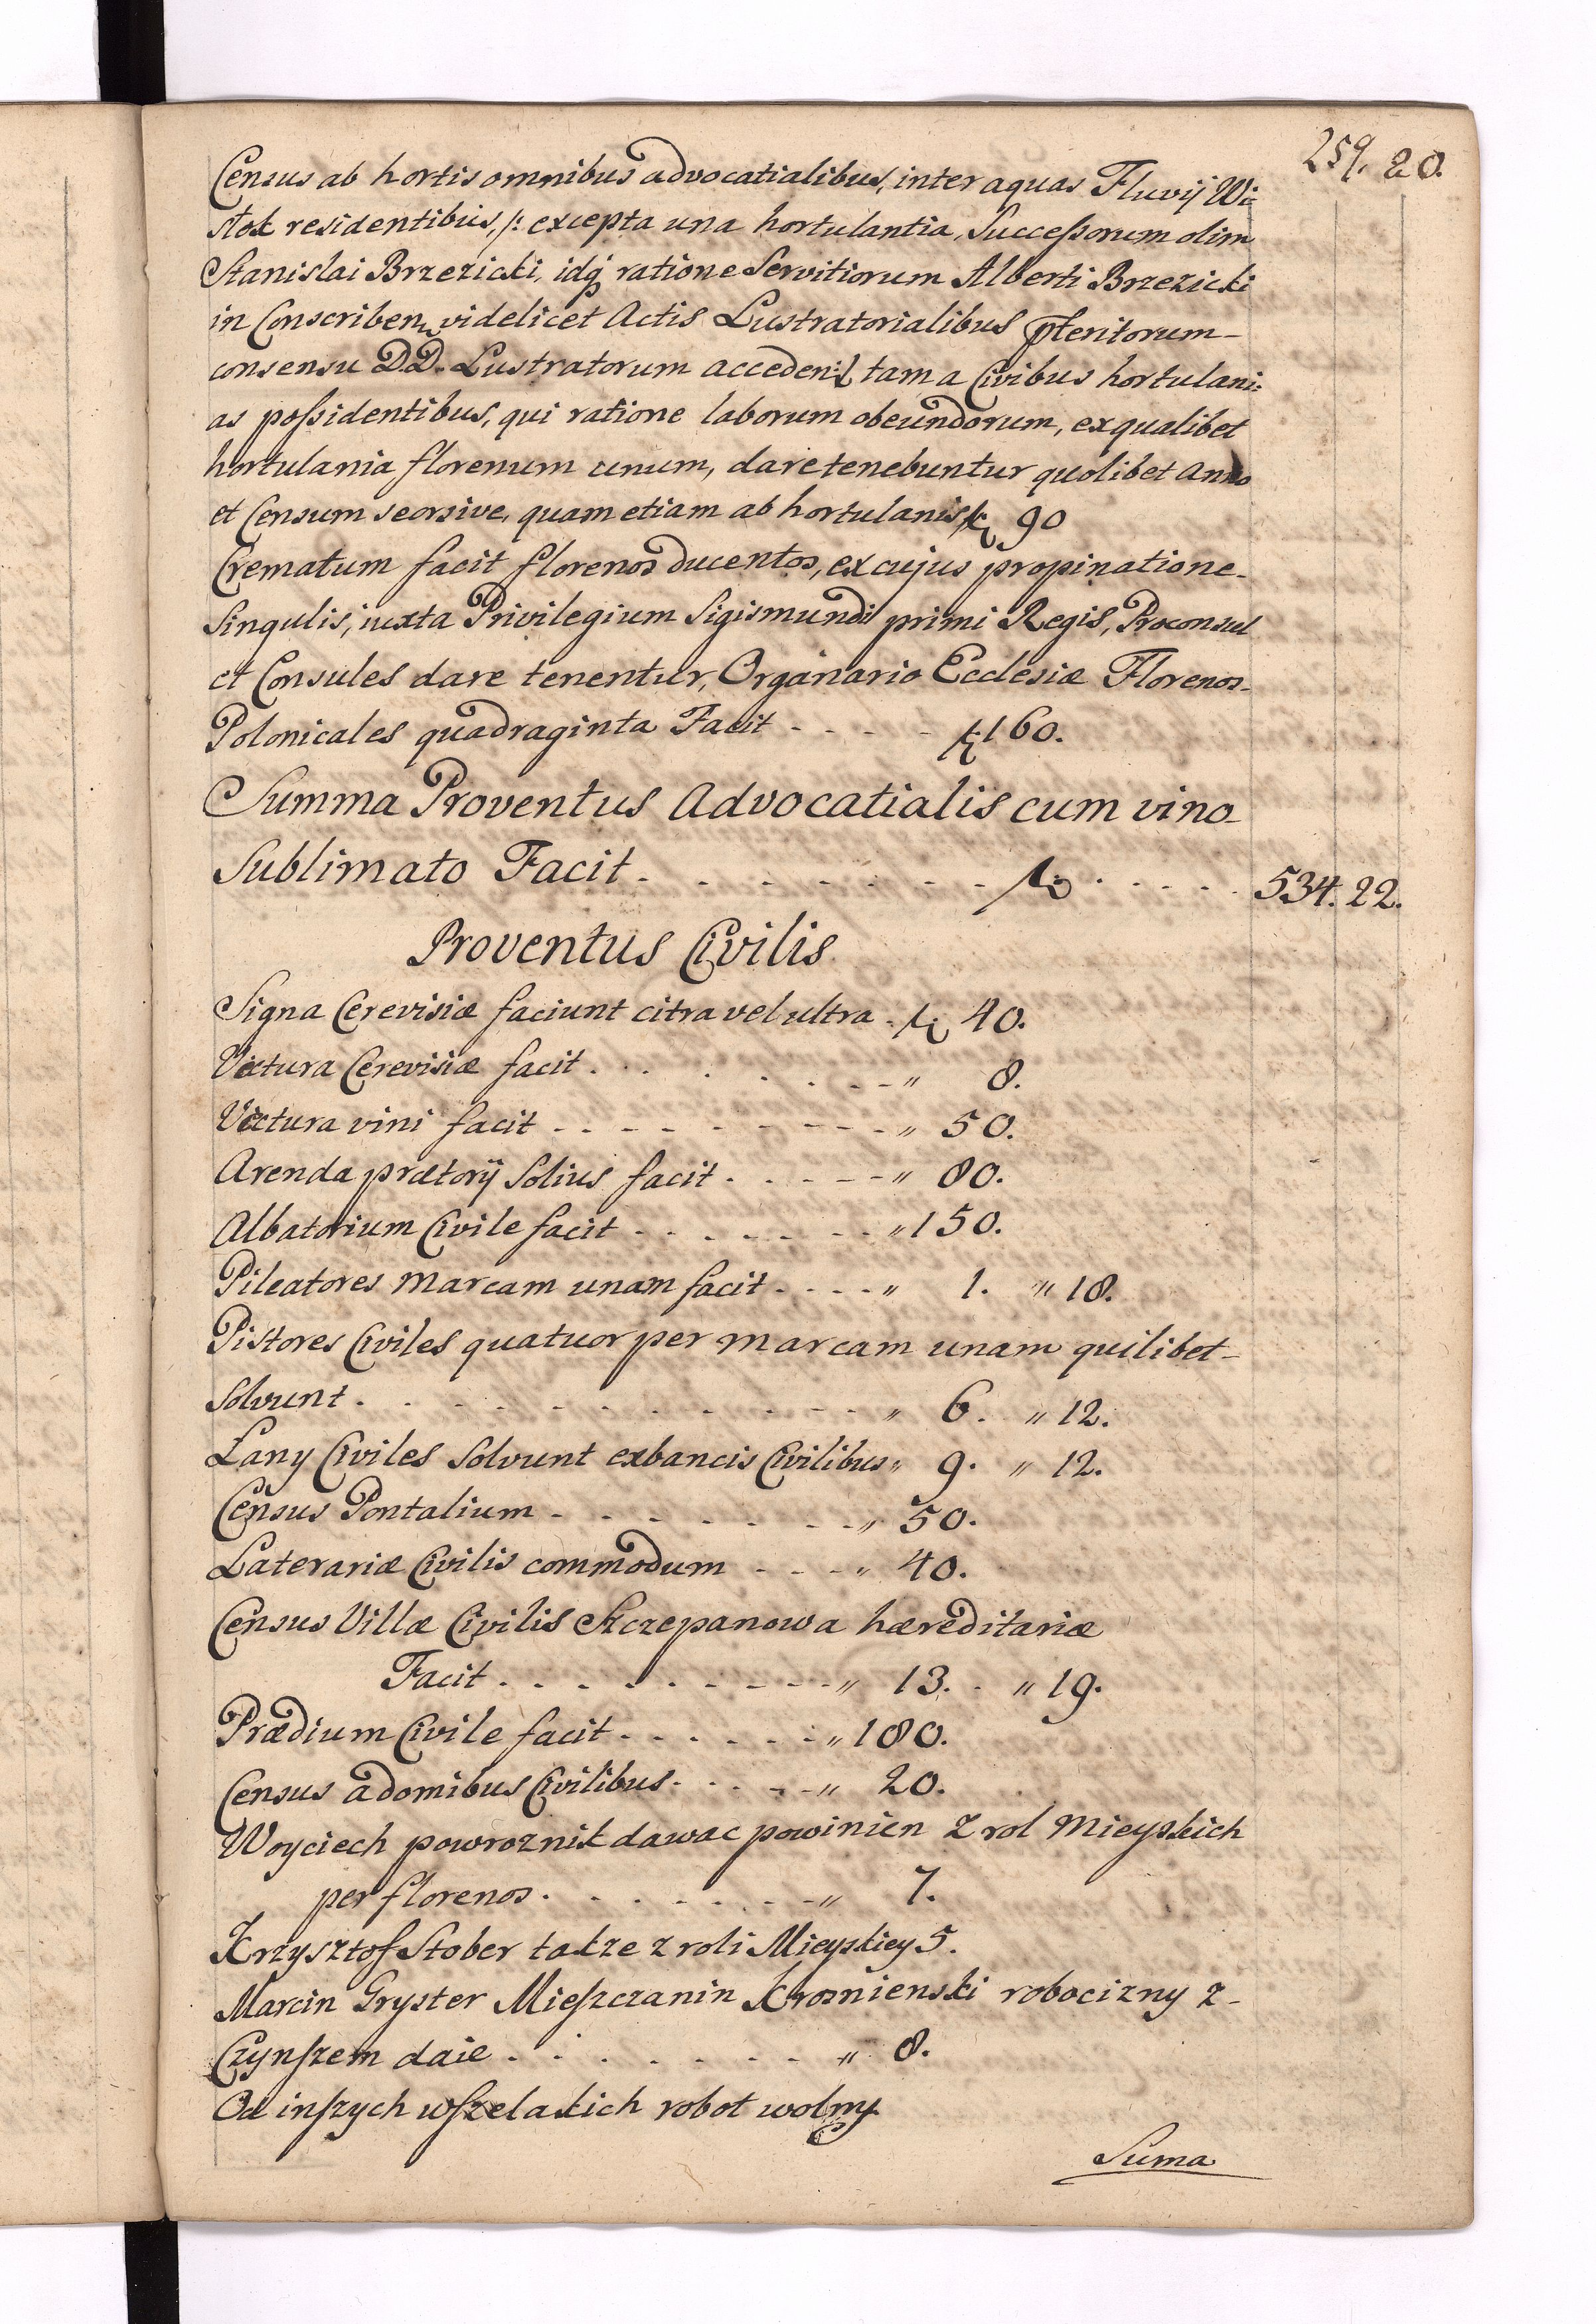 259. 20.
Census ab hortis omnibus advocatialibus, inter aquas Fluvij Wi=
stok residentibus, /: excepta una hortulantia, Successorum olim
Stanislai Brzezicki, idq̃ ratione Servitiorum Alberti Brzezicki
in Conscriben: videlicet Actis Lustratorialibus pteritorum
consensu D.D. Lustratorum acceden: tam a Civibus hortulani=
as possidentibus, qui ratione laborum obeundorum, ex qualibet
hortulania florenum unum, dare tenebuntur quolibet Anno
et Censum seorsive, quam etiam ab hortulanis f: 90
Crematum facit florenos ducentos, ex cujus propinatione
Singulis, iuxta Privilegium Sigismundi primi Regis, Proconsul
et Consules dare tenentur, Organario Ecclesiæ Florenos
Polonicales quadraginta Facit - - - - f: 160.
Summa Proventus Advocatialis cum vino
Sublimato Facit - - - - - - - f: - - - - 534. 22.
Proventus Civilis
Signa Cerevisiæ faciunt citra vel ultra - f: 40.
Vectura Cerevisiæ facit - - - - - - " 8.
Vectura vini facit - - - - - - - - - " 50.
Arenda prætorij Solius facit - - - - - " 80.
Albatorium Civile facit - - - - - - - " 150.
Pileatores Marcam unam facit - - - - " 1. " 18.
Pistores Civiles quatuor per Marcam unam quilibet
Solvunt - - - - - - - - - - - " 6. " 12.
Lany Civiles Solvunt ex bancis Civilibus " 9. " 12.
Census Pontalium - - - - - - - " 50.
Laterariæ Civilis commodum - - - " 40.
Census Villæ Civilis Szczepanowa hæreditariæ
Facit - - - - - - - - - " 13. - " 19.
Prædium Civile facit - - - - - - " 180.
Census a domibus Civilibus - - - - " 20.
Woyciech powroznik dawac powinien z rol Mieyskich
per florenos - - - - - - - " 7.
Krzysztof Stober takze z roli Mieyskiey 5.
Marcin Gryster Mieszczanin Krosnienski robocizny z
Czynszem daie - - - - - - - " 8.
Od inszych wszelakich robot wolny
Suma